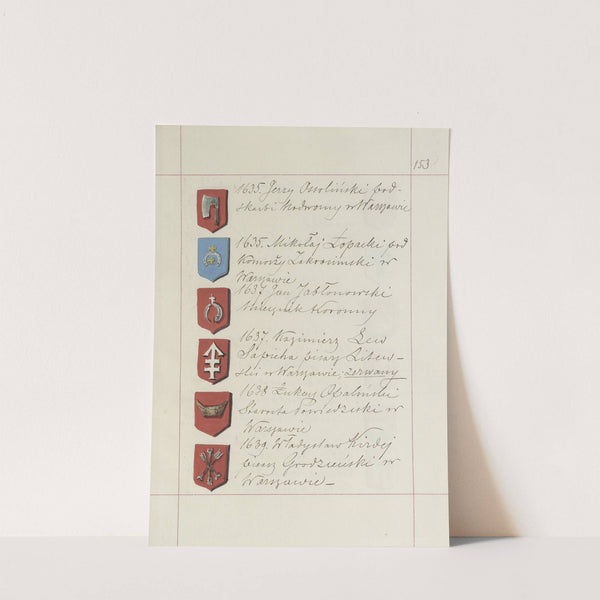 153
1635. Jerzy Ossoliński pod-
skarbi Nadworny w Warszawie
1635. Mikołaj Łopacki pod
Komorzy Zakroczimski w
Warszawie
1637 Jan Jabłonowski
Miecznik Koronny
1637. Kazimierz Lew
Sapieha pisarz Litew-
ski w Warszawie; zerwany
1638 Łukasz Opaliński
Starosta w
Warszawie
1639. Władysław Kirdej
pisarz Grodzieński w
Warszawie